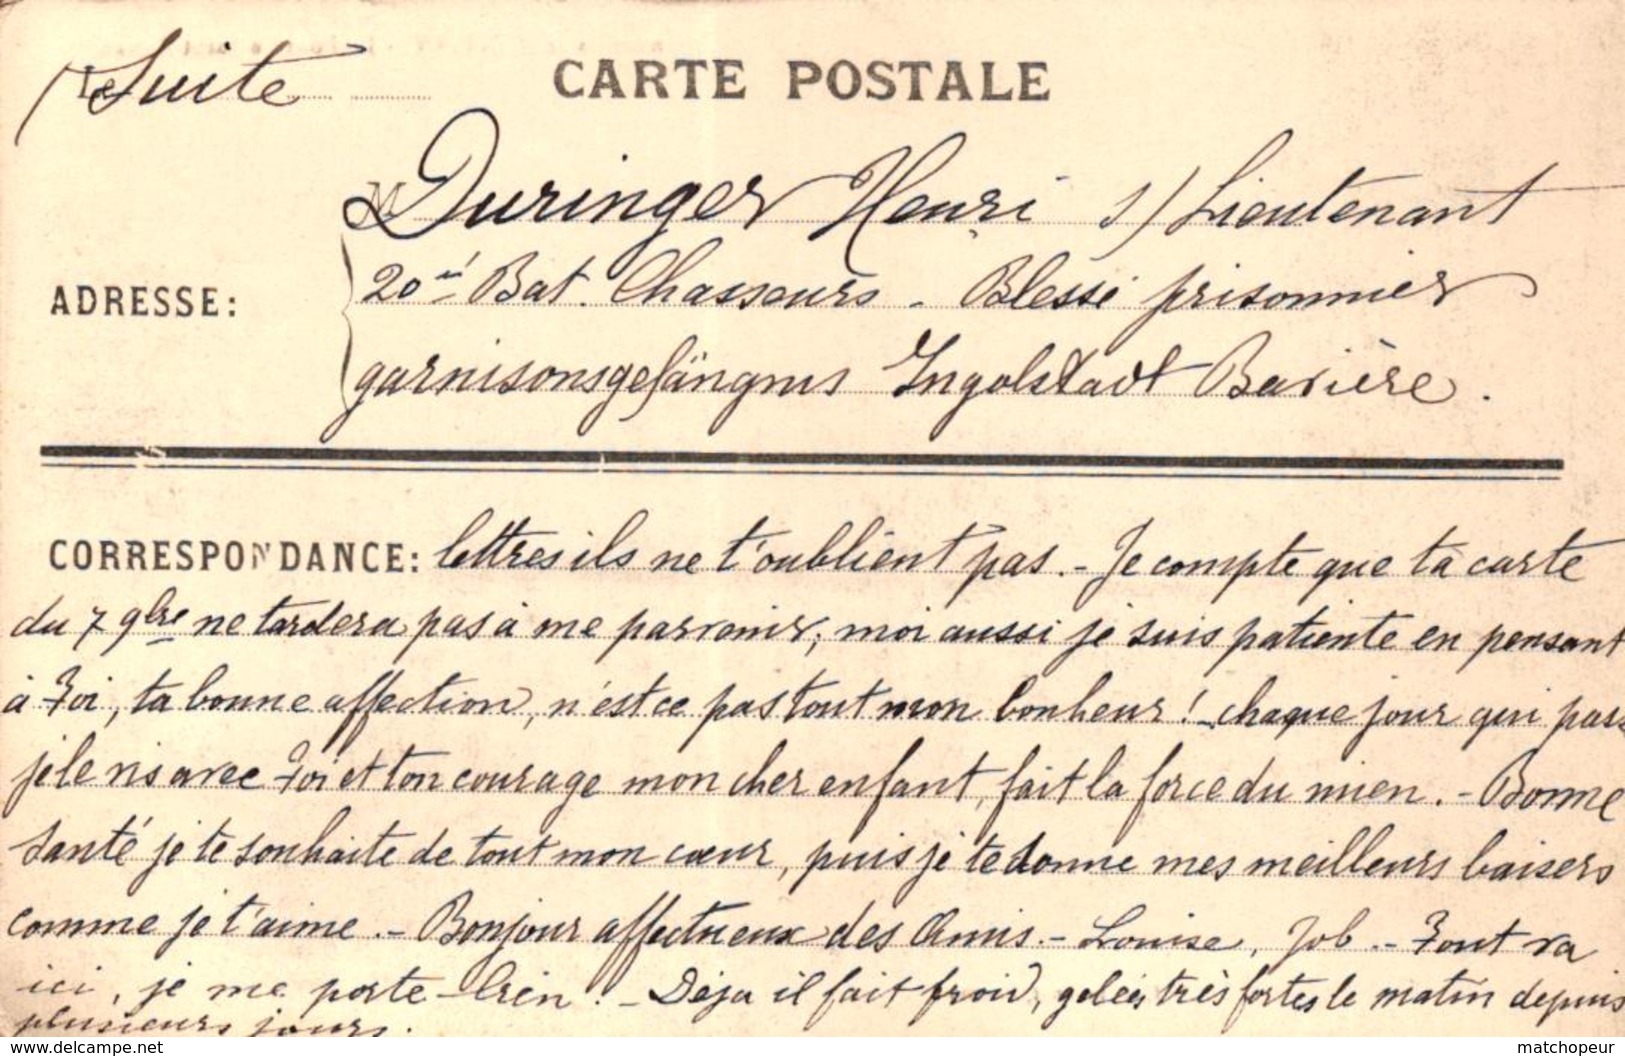 Suite
CARTE POSTALE
Duringer Henri s/ Lieutenant
ADRESSE:
20è Bat. Chasseurs - Blessé prisonnier
garnisonsgefängnis Ingolstadt Bavière.
CORRESPONDANCE: lettres ils ne t'oublient pas. - Je compte que ta carte
du 7 9bre ne tardera pas à me parvenir, moi aussi je suis patiente en pensant
à Toi, ta bonne affection, n'est ce pas tout mon bonheur! - chaque jour qui passe
je le vis avec Toi et ton courage mon cher enfant, fait la force du mien. - Bonne
Santé je te souhaite de tout mon cœur, puis je te donne mes meilleurs baisers
comme je t'aime. - Bonjour affectueux des Amis. - Louise, Job. - Tout va
ici, je me porte bien! - Déja il fait froid, gelées très fortes le matin depuis
plusieurs jours.
www.delcampe.net
matchopeur